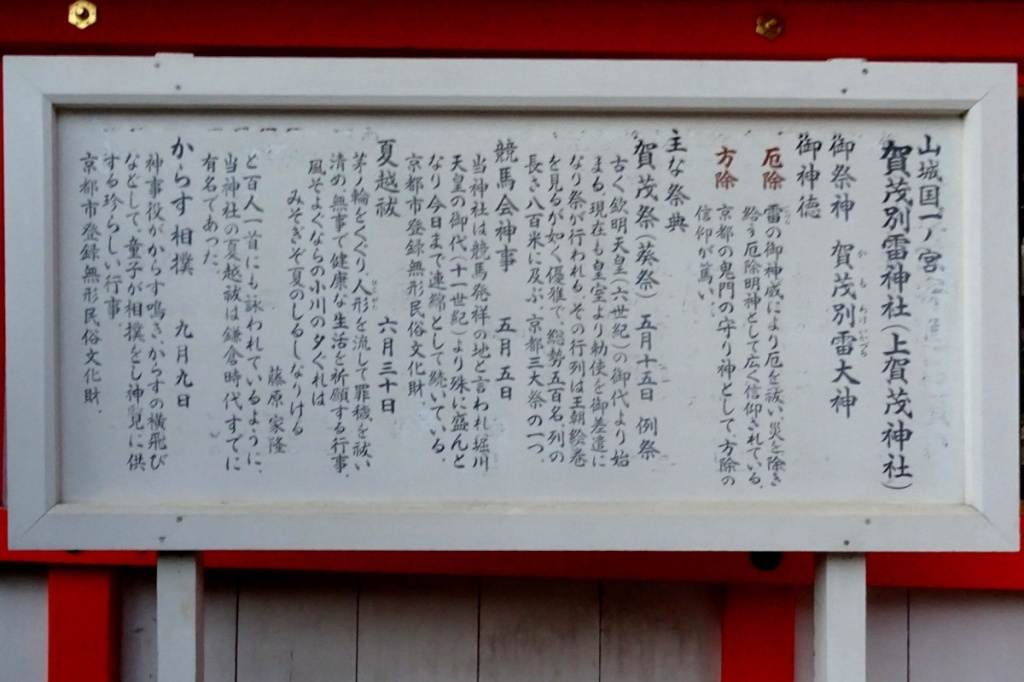 山城国一ノ宮
賀茂別雷神社(上賀茂神社)
御祭神 賀茂別雷大神
かもわけいかづち
御神徳
厄除 雷の御神威により厄を祓い災を除き
給う厄除明神として広く信仰されている。
方除 京都の鬼門の守り神として、方除の
信仰が篤い
主な祭典
賀茂祭(葵祭) 五月十五日 例祭
古く欽明天皇(六世紀)の御代より始
まる。現在も皇室より勅使を御差遣に
なり祭が行われる。その行列は王朝絵巻
を見るが如く優雅で、総勢五百名、列の
長さ八百米に及ぶ京都三大祭の一つ。
競馬会神事 五月五日
当神社は競馬発祥の地と言われ堀川
天皇の御代(十一世紀)より殊に盛んと
なり今日まで連綿として続いている。
京都市登録無形民俗文化財
夏越祓 六月三十日
茅ノ輪をくぐり、人形を流して罪穢を祓い
清め、無事で健康な生活を祈願する行事。
風そよぐならの小川の夕ぐれは
みそぎぞ夏のしるしなりける
藤原家隆
と百人一首にも詠われているように、
当神社の夏越祓は鎌倉時代すでに
有名であった。
からす相撲 九月九日
神事役がからす鳴き、からすの横飛び
などして、童子が相撲をし神覧に供
する珍らしい行事
京都市登録無形民俗文化財。